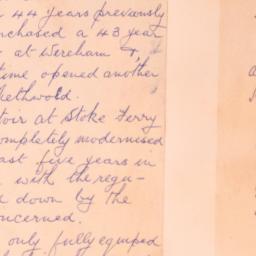 44 years previously
purchased a 43 year
at Wereham &
time opened another
Methwold.
toir at Stoke Ferry
completely modernised
ast five years in
with the regu-
d down by the
oncerned.
only fully equiped